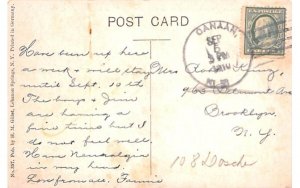 POST CARD
CANAAN,
SEP
5
3 PM
1910
N.Y.
Have been up here
a week & will stay
until Sept. 10th
The boys & Jim
are having a
fine time but I
do not feel well.
Have Neuralgia
in my head.
Love from all. Fannie
Mrs Robt King,
463 Belmont Ave
Brooklyn
N. Y.
108
Pub. by H. M. Gillet, Lebanon Springs, N. Y. Printed in Germany.